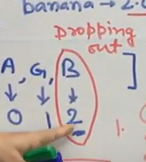 banana → 2.
Dropping
out
A, G, B ]
↓ ↓ ↓
0 1 2
1.